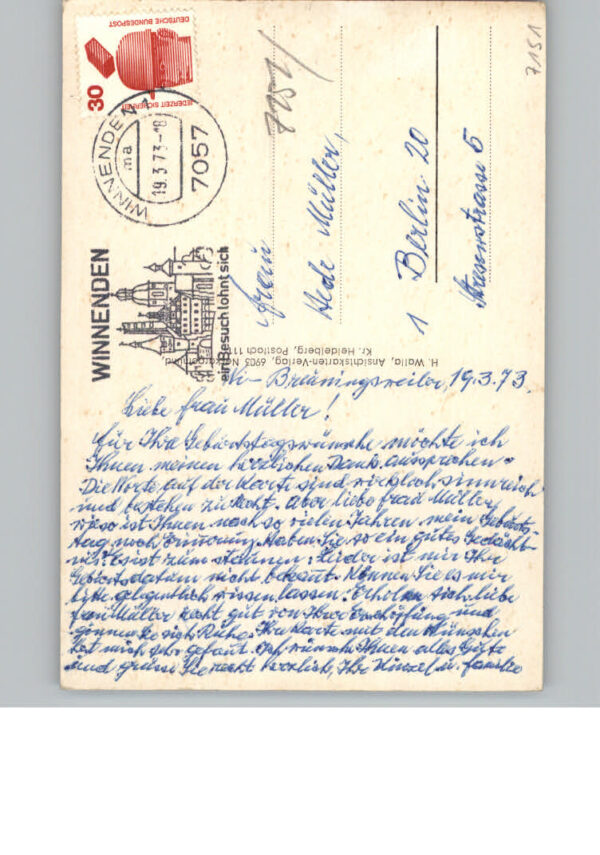 7151
DEUTSCHE BUNDESPOST
JEDERZEIT SICHERHEIT
30
WINNENDEN 1
ma
19.3.73-18
7057
WINNENDEN
ein Besuch lohnt sich
7151/
Frau
Hede Müller,
1 Berlin 20
Straße 5
H. Walla, Ansichtskarten-Verlag, 6903 Neckargemünd
Kr. Heidelberg, Postfach 11
Wi-Breuningsweiler, 19.3.73.
Liebe Frau Müller!
für Ihre Geburtstagswünsche möchte ich
Ihnen meinen herzlichen Dank aussprechen.
Die Worte auf der Karte sind wirklich sinnreich
und bestehen zu Recht. Aber liebe Frau Müller,
wieso ist Ihnen nach so vielen Jahren mein Geburts-
tag noch Erinnerung. Haben Sie so ein gutes Gedächt-
nis? Es ist zum staunen. Leider ist mir Ihr
Geburtsdatum nicht bekannt. Können Sie es mir
bitte gelegentlich wissen lassen. Erholen sich liebe
Frau Müller recht gut von Ihrer Erschöpfung und
gönnen sich Ruhe. Ihre Karte mit den Wünschen
hat mich sehr gefreut. Ich wünsche Ihnen alles Gute
und grüsse Sie recht herzlich, Ihr u. Familie